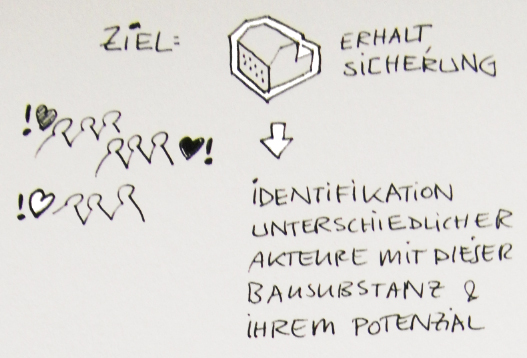 ZIEL:
ERHALT,
SICHERUNG
! !
!
IDENTIFIKATION
UNTERSCHIEDLICHER
AKTEURE MIT DIESER
BAUSUBSTANZ &
IHREM POTENZIAL